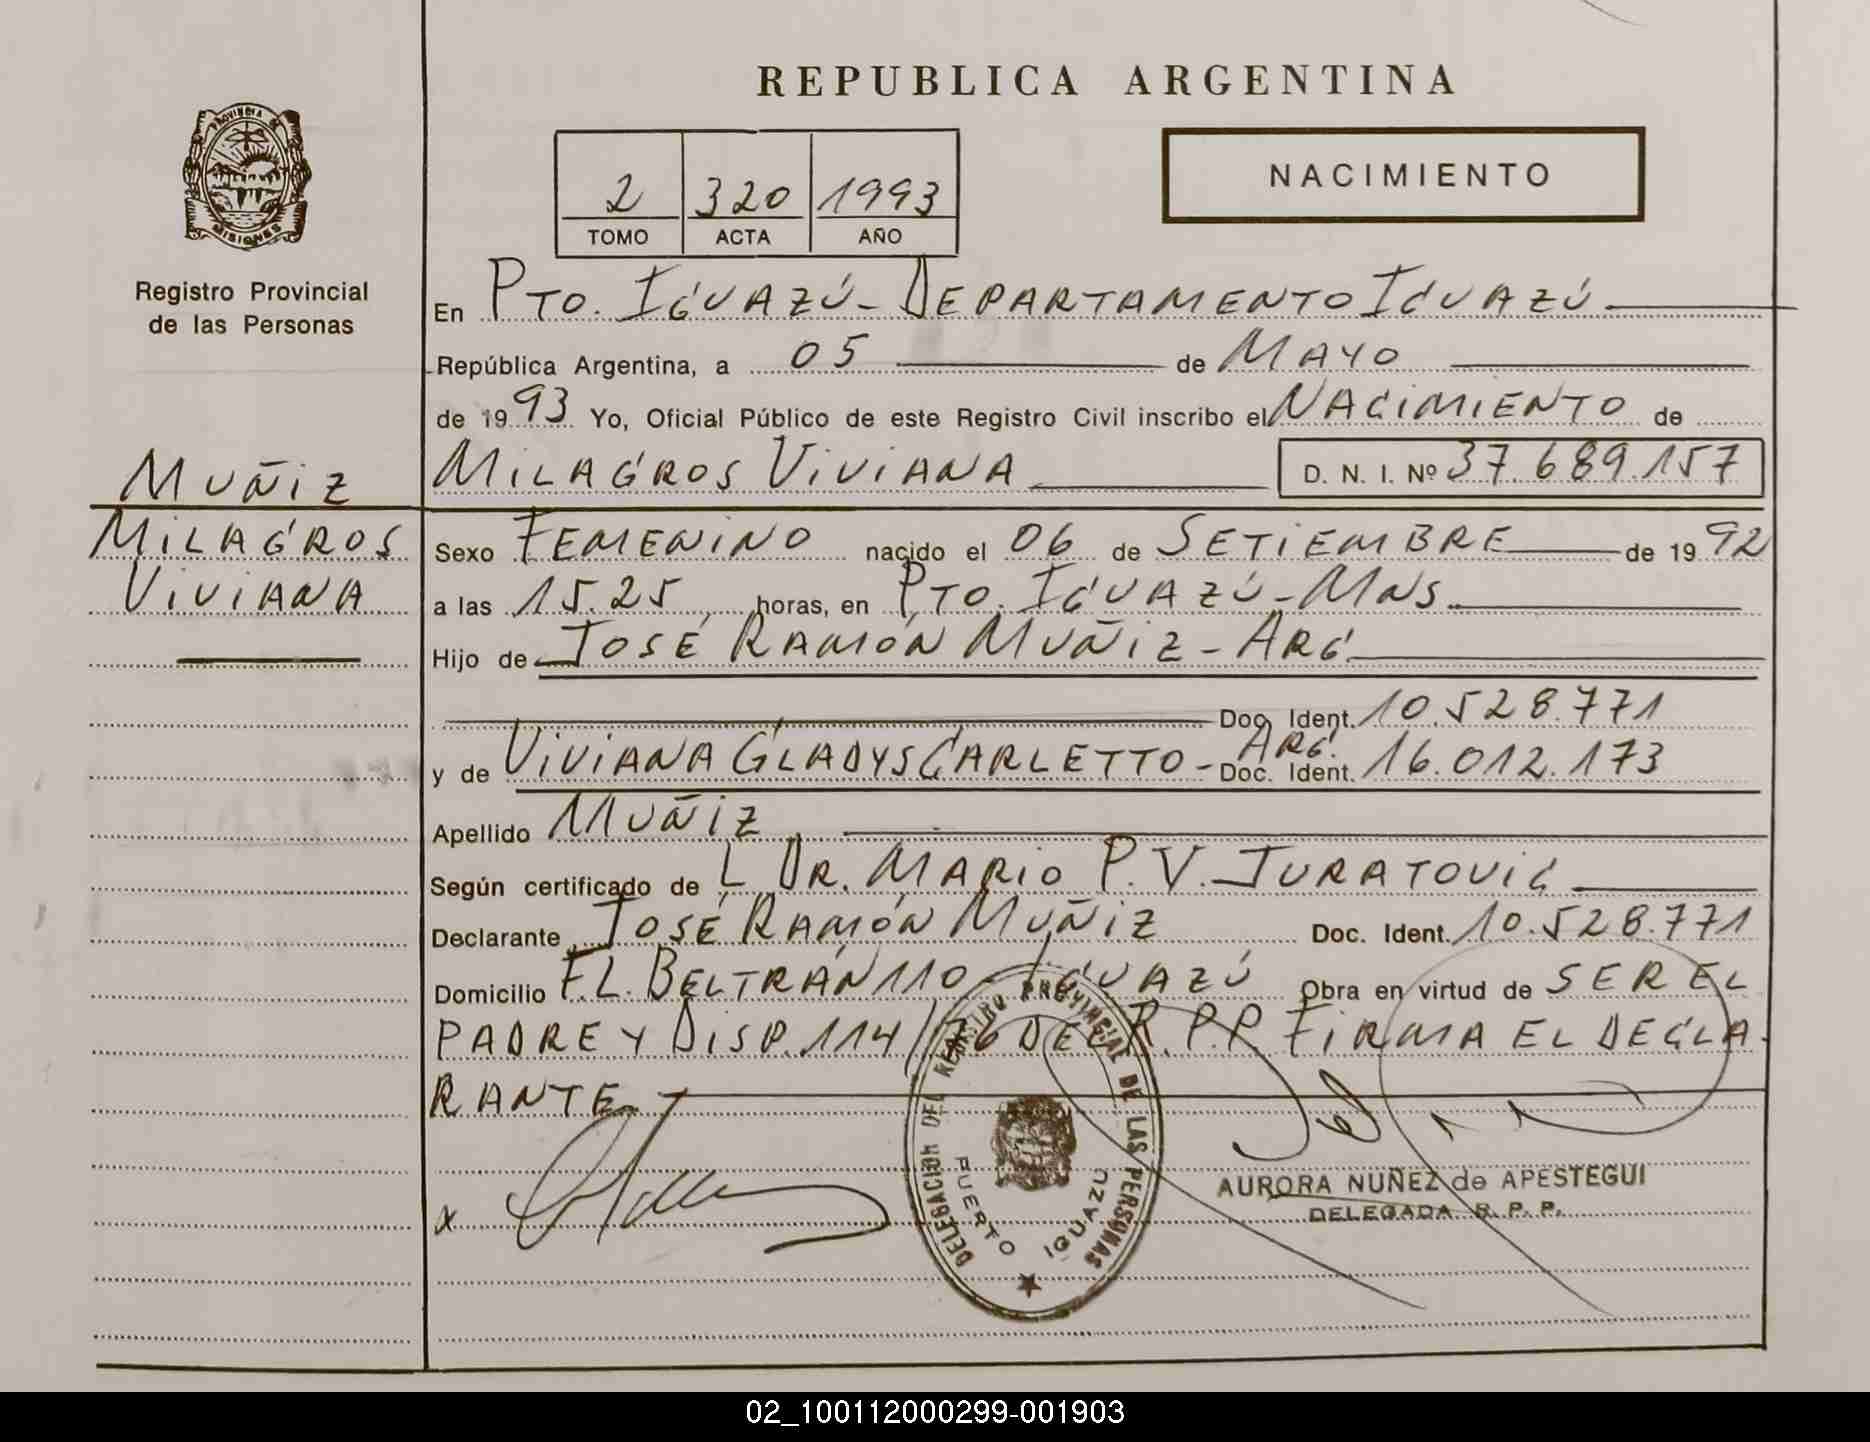 REPUBLICA ARGENTINA
PROVINCIA DE
MISIONES
Registro Provincial
de las Personas
2 320 1993
TOMO ACTA AÑO
NACIMIENTO
En PTO. IGUAZÚ - DEPARTAMENTO IGUAZÚ
República Argentina, a 05 de MAYO
de 1993 Yo, Oficial Público de este Registro Civil inscribo el NACIMIENTO de
MUÑIZ
MILAGROS
VIVIANA
MILAGROS VIVIANA D. N. I. Nº 37.689.157
Sexo FEMENINO nacido el 06 de SETIEMBRE de 1992
a las 15.25 horas, en PTO. IGUAZÚ - MNS.
Hijo de JOSÉ RAMÓN MUÑIZ - ARG
Doc. Ident. 10.528.771
y de VIVIANA GLADYS CARLETTO - ARG. Doc. Ident. 16.012.173
Apellido MUÑIZ
Según certificado de L DR. MARIO P. V. JURATOVIC
Declarante JOSÉ RAMÓN MUÑIZ Doc. Ident. 10.528.771
Domicilio F.L. BELTRÁN 110 - IGUAZÚ Obra en virtud de SER EL
PADRE Y DISP. 114/76 DEL R.P.P. FIRMA EL DECLA-
RANTE
x
DELEGACION DEL REGISTRO PROVINCIAL DE LAS PERSONAS
PUERTO IGUAZU
AURORA NUÑEZ de APESTEGUI
DELEGADA R. P. P.
02_100112000299-001903